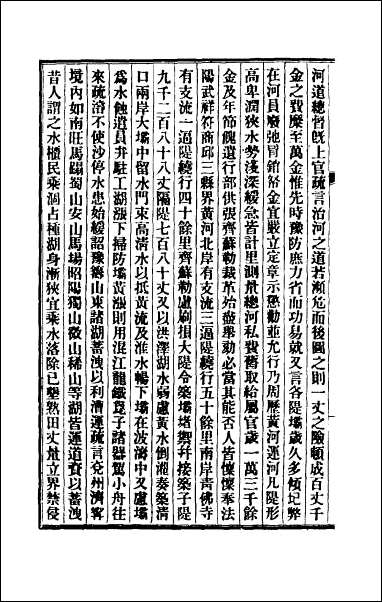 河道總督旣上官疏言治河之道若瀕危而後圖之則一丈之險頓成百丈千
金之費糜至萬金惟先時豫防庶力省而功易就又言各隄壩歲久多傾圮弊
在河員廢弛冒銷帑金宜嚴立定章示懲勸並允行乃周歷黃河運河凡隄形
高卑濶狹水勢淺深緩急皆計里測量總河私費舊取給屬官歲一萬三千餘
金及年節餽遺行部供張齊蘇勒裁革殆盡舉劾必當其能否人皆懍懍奉法
陽武祥符商邱三縣界黃河北岸有支流三逼隄繞行五十餘里南岸青佛寺
有支流一逼隄繞行四十餘里齊蘇勒慮刷損大隄令築壩堵禦幷接築子隄
九千二百八十八丈隔隄七百八十丈又以洪澤湖水弱慮黃水倒灌奏築清
口兩岸大壩中留水門束高清水以抵黃流及淮水暢下壩在波濤中又慮壩
爲水蝕遣員弁駐工湖漲下掃防壩黃漲則用混江龍鐵箆子諸器駕小舟往
來疏濬不使沙停水患始緩詔豫籌山東諸湖蓄洩以利漕運疏言兗州濟寧
境內如南旺馬蹋蜀山安山馬場昭陽獨山微山稀山等湖皆運道資以蓄洩
昔人謂之水櫃民乘涸占種湖身漸狹宜乘水落除已墾熟田丈量立界禁侵